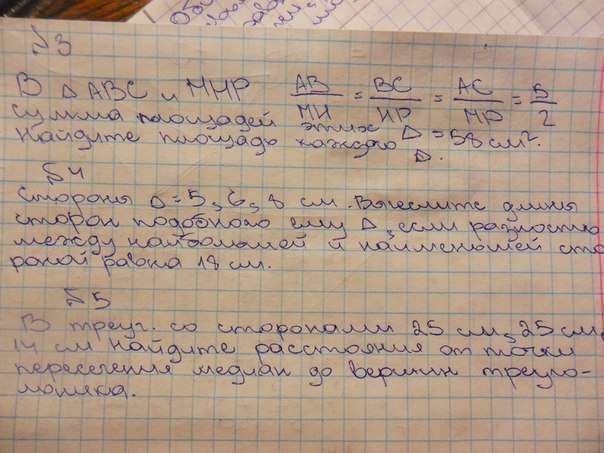 №3
В △ ABC и МНР AB/MH = BC/HP = AC/MP = 5/2
сумма площадей этих △ = 58 см².
Найдите площадь каждого △.
№4
Стороны △ = 5, 6, 8 см. Вычеслите длины
сторон подобного ему △, если разность
между наибольшей и наименьшей сто-
роной равна 18 см.
№5
В треуг. со сторонами 25 см, 25 см,
14 см найдите расстояния от точки
пересечения медиан до вершин треуго-
льника.